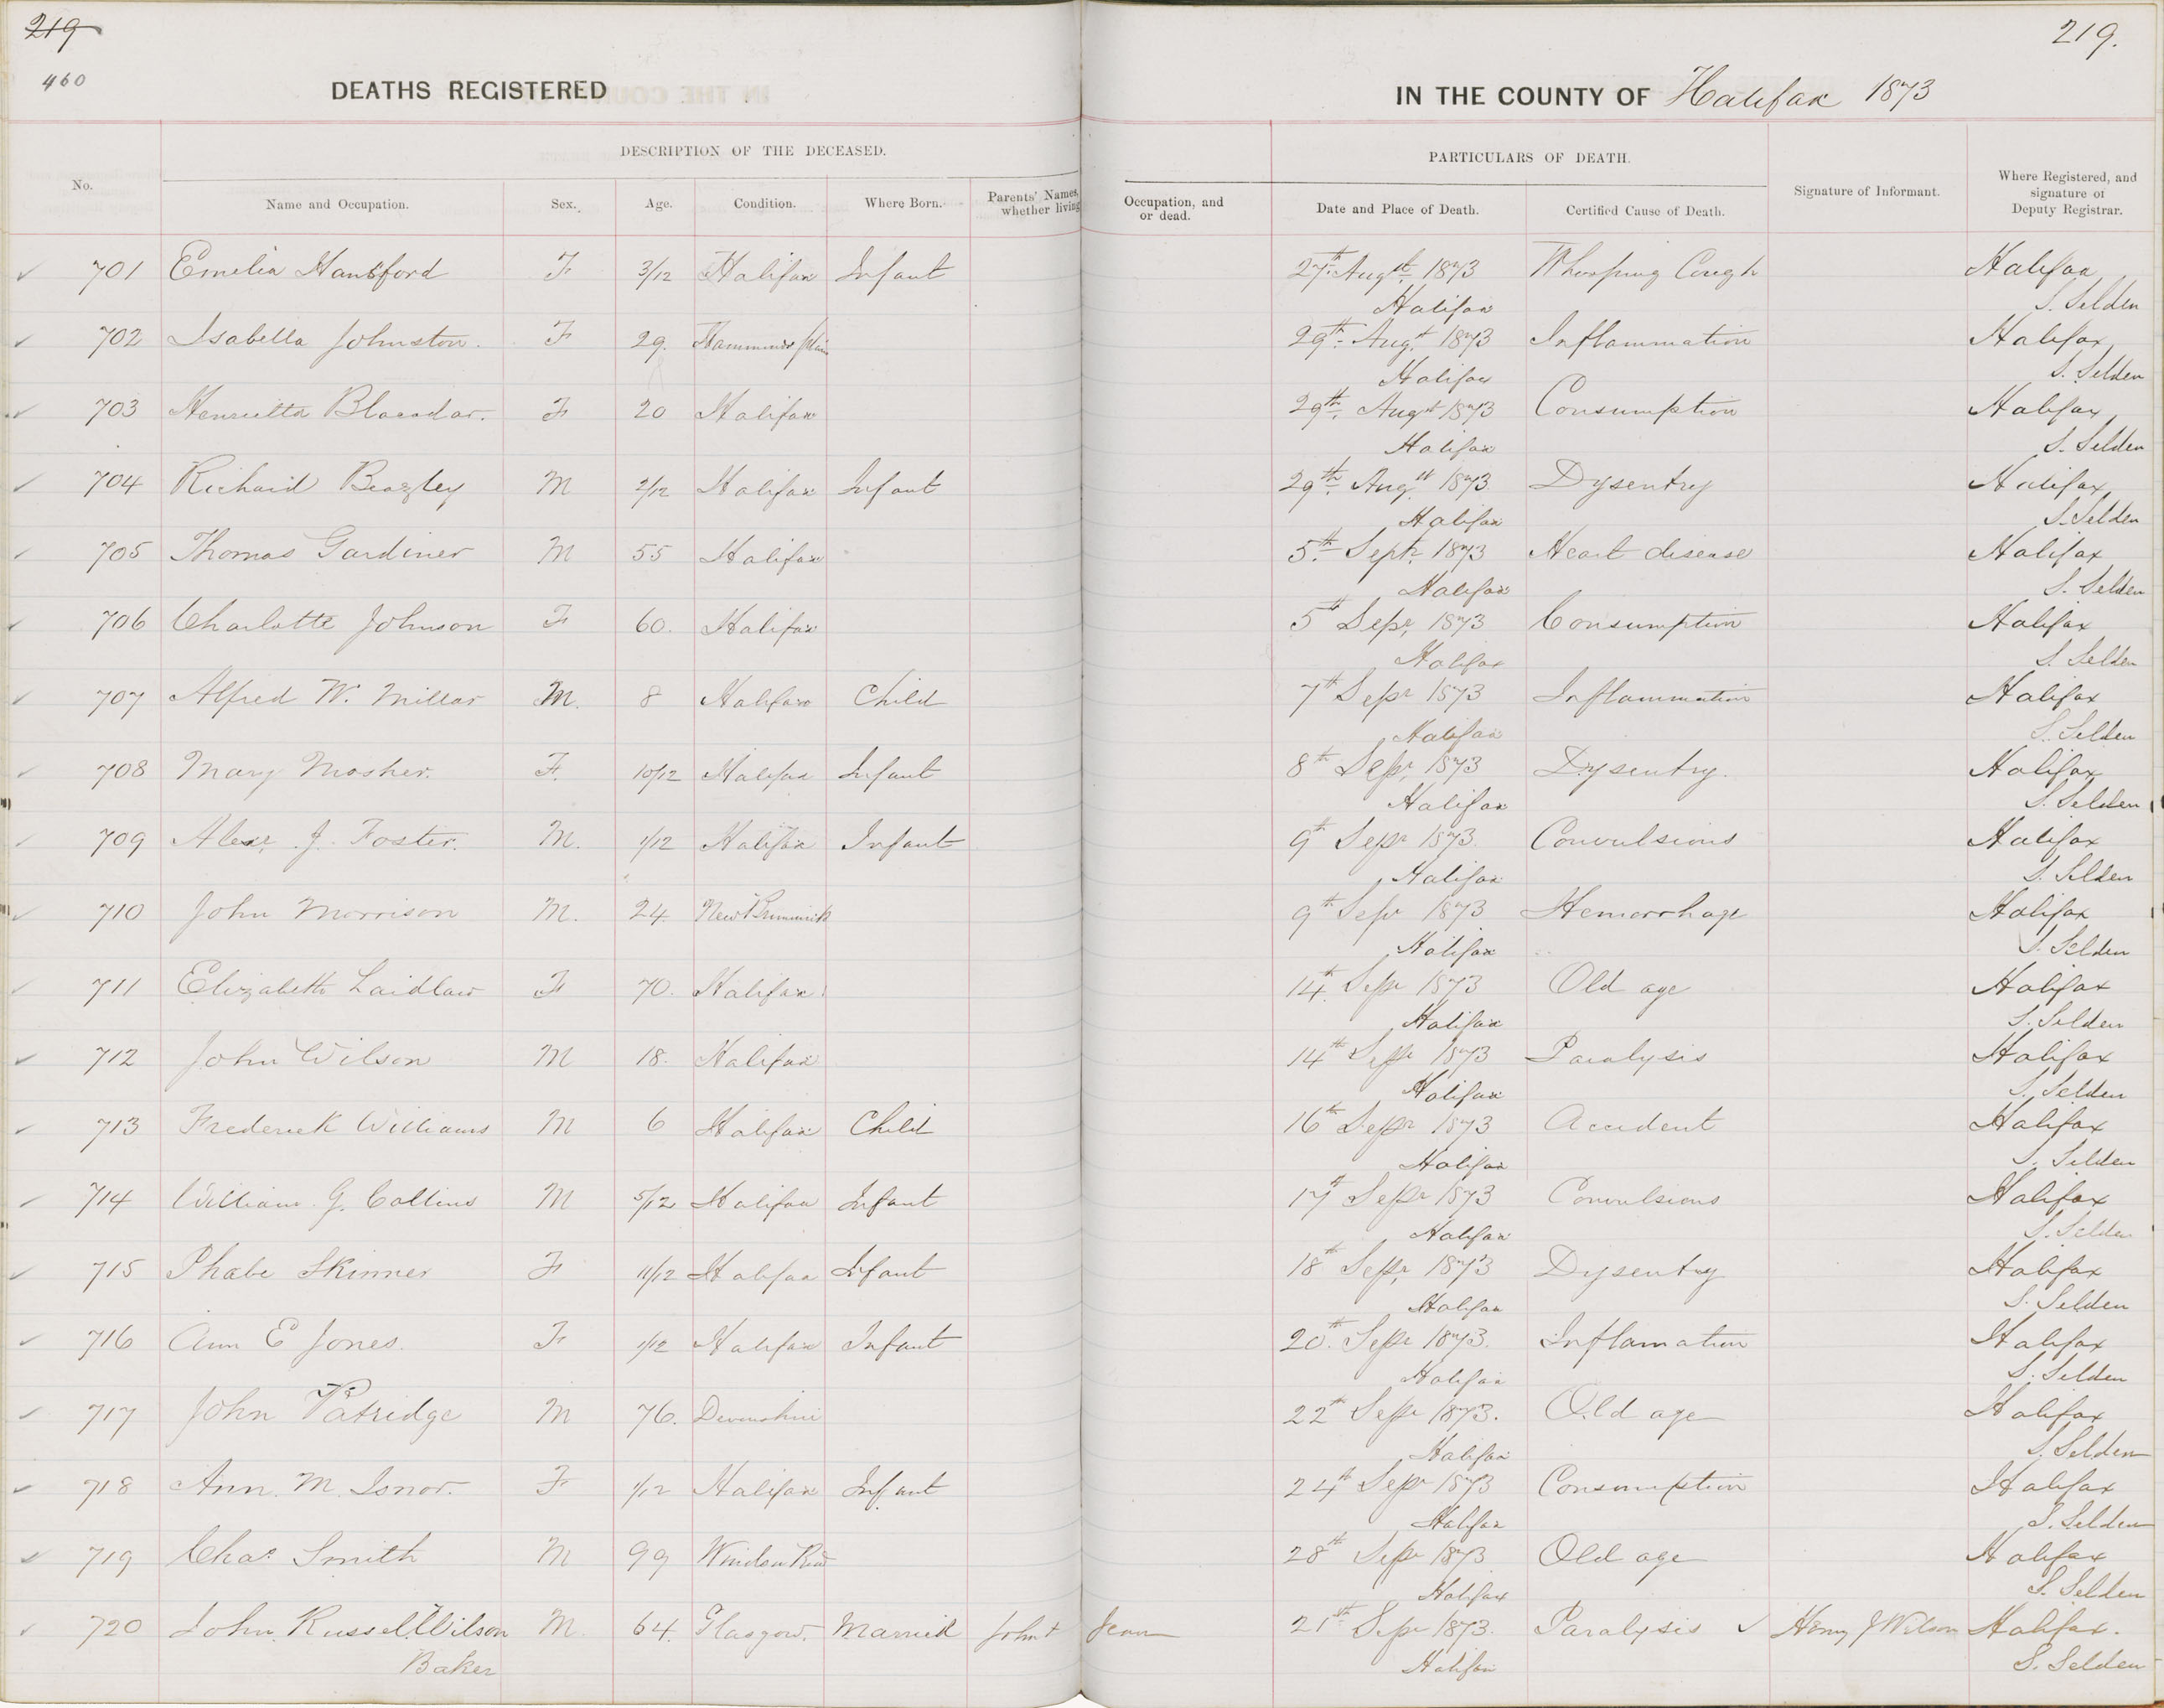 219
460
DEATHS REGISTERED
DESCRIPTION OF THE DECEASED.
No.
Name and Occupation.
Sex.
Age.
Condition.
Where Born.
Parents' Names, whether living
219.
IN THE COUNTY OF Halifax 1873
PARTICULARS OF DEATH.
Occupation, and or dead.
Date and Place of Death.
Certified Cause of Death.
Signature of Informant.
Where Registered, and signature of Deputy Registrar.
701 Emelia Hansford F 3/12 Halifax Infant 27th Augst 1873 Whooping Cough Halifax
Halifax S. Selden
702 Isabella Johnston. F 29. Hammonds Plain 29th Augt 1873 Inflammation Halifax
Halifax S. Selden
703 Henrietta Blacadar. F 20 Halifax 29th Augt 1873 Consumption Halifax
Halifax S. Selden
704 Richard Beazley M 2/12 Halifax Infant 29th Augt 1873 Dysentry Halifax
Halifax S. Selden
705 Thomas Gardiner M 55 Halifax 5th Septr 1873 Heart disease Halifax
Halifax S. Selden
706 Charlotte Johnson F 60. Halifax 5th Sepr 1873 Consumption Halifax
Halifax S. Selden
707 Alfred W. Millar M. 8 Halifax Child 7th Sepr 1873 Inflammation Halifax
Halifax S. Selden
708 Mary Mosher. F. 10/12 Halifax Infant 8th Sepr 1873 Dysentry. Halifax
Halifax S. Selden
709 Alexr J. Foster. M. 1/12 Halifax Infant 9th Sepr 1873 Convulsions Halifax
Halifax S. Selden
710 John Morrison M. 24 New Brunswick 9th Sepr 1873 Hemorrhage Halifax
Halifax S. Selden
711 Elizabeth Laidlaw F 70. Halifax 14th Sepr 1873 Old age Halifax
Halifax S. Selden
712 John Wilson M 18. Halifax 14th Sepr 1873 Paralysis Halifax
Halifax S. Selden
713 Frederick Williams M 6 Halifax Child 16th Sepr 1873 Accident Halifax
Halifax S. Selden
714 William G. Collins M 5/12 Halifax Infant 17th Sepr 1873 Convulsions Halifax
Halifax S. Selden
715 Phabe Skinner F 11/12 Halifax Infant 18th Sepr 1873 Dysentry Halifax
Halifax S. Selden
716 Ann E Jones. F 1/12 Halifax Infant 20th Sepr 1873. Inflamation Halifax
Halifax S. Selden
717 John Patridge M 76. Devonshire 22th Sepr 1873. Old age Halifax
Halifax S. Selden
718 Ann. M. Isnor. F 1/12 Halifax Infant 24th Sepr 1873 Consumption Halifax
Halifax S. Selden
719 Chas. Smith M 99 Windsor Road 28th Sepr 1873 Old age Halifax
Halifax S. Selden
720 John Russell Wilson M. 64. Glasgow. Married John & Jean 21th Sepr 1873. Paralysis Henry J Wilson Halifax.
Baker Halifax S. Selden